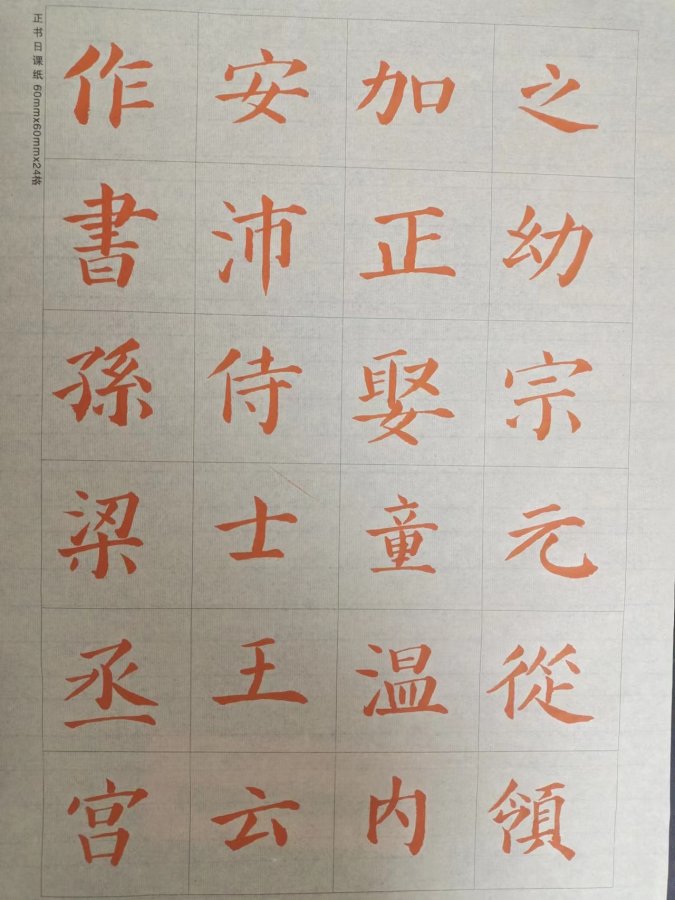 之幼宗元從領
加正娶童温内
安沛侍士王云
作書孫梁丞宫
正书日课纸 60mmx60mmx24格